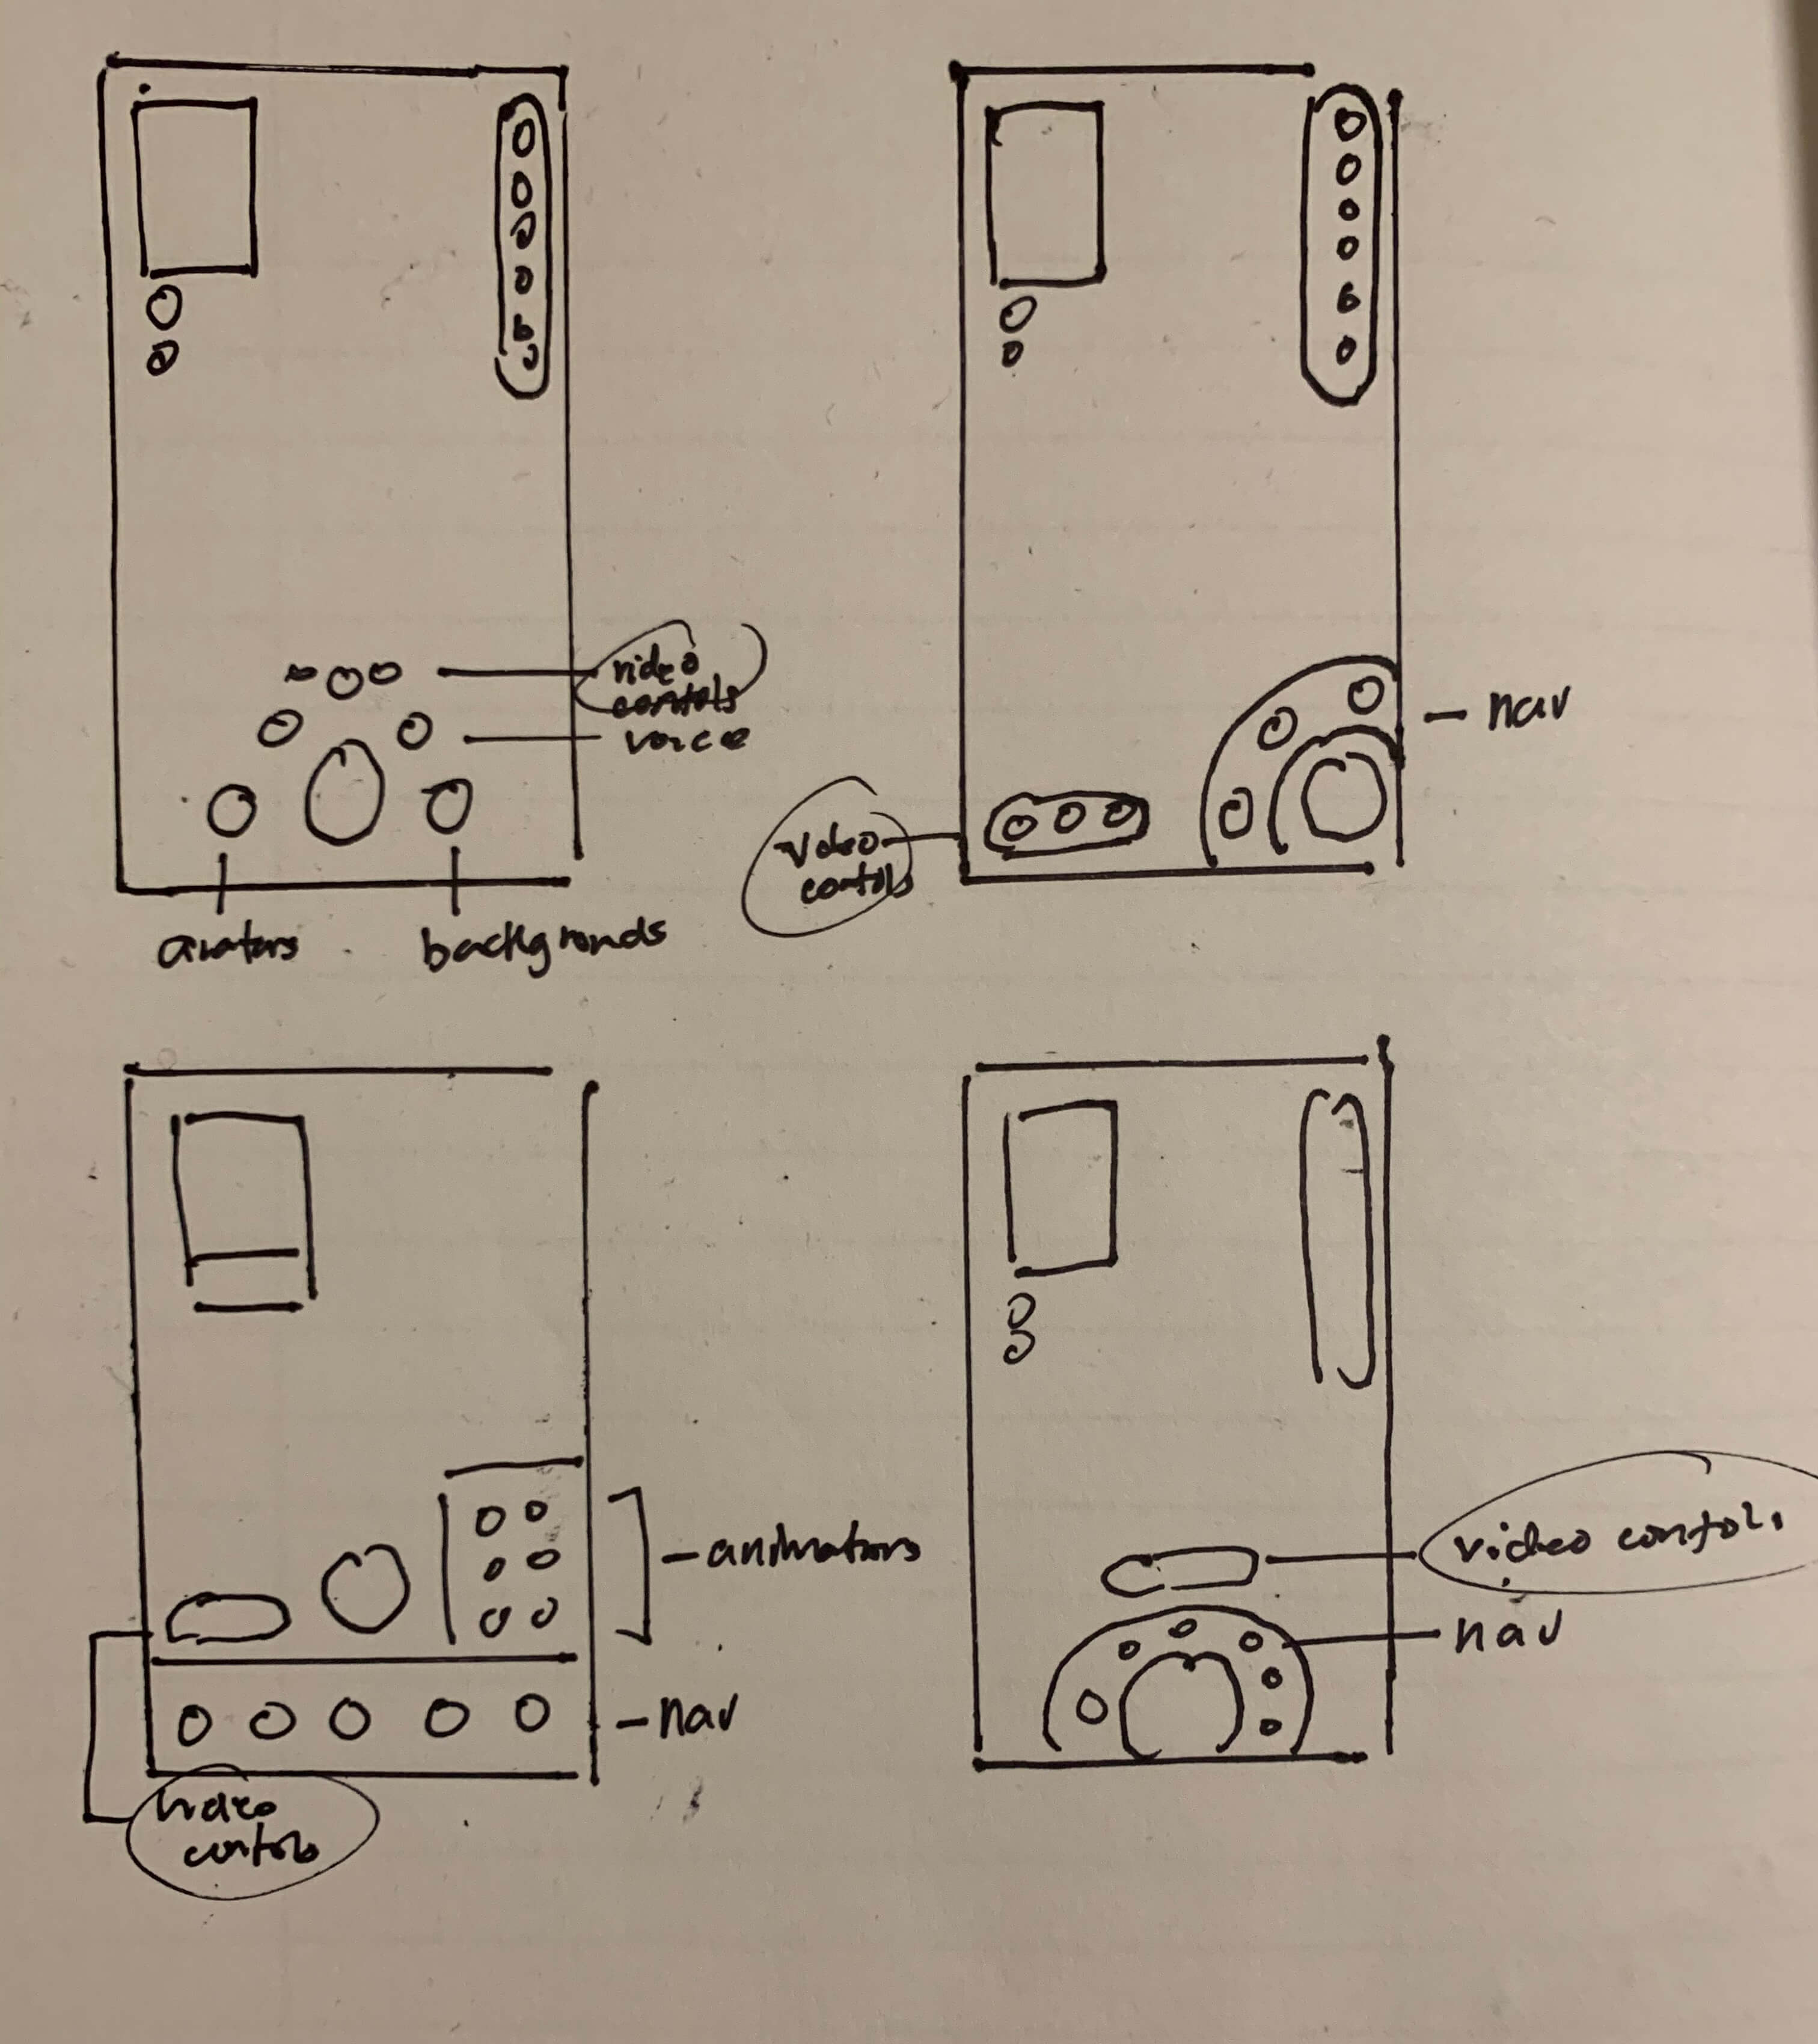 video
contols
voice
avatars
backgronds
- nav
Video
contols
- animators
- nav
video
contols
video contols
nav